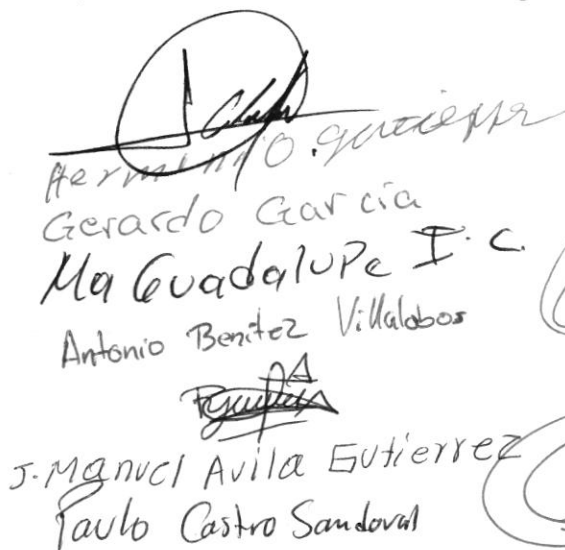 Herminio O. Gutierrez
Gerardo Garcia
Ma Guadalupe I. C.
Antonio Benitez Villalobos
J. Manuel Avila Gutierrez
Paulo Castro Sandoval